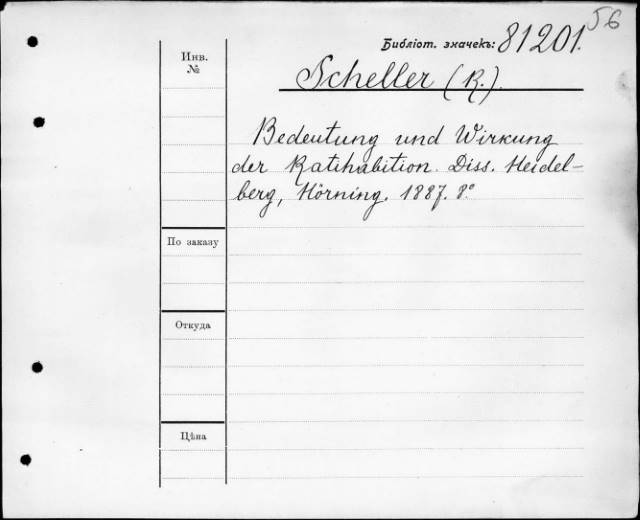 56
Библіот. значекъ: 81201.
Инв.
№
Scheller (R.).
Bedeutung und Wirkung
der Ratihabition. Diss. Heidel-
berg, Hörning. 1887. 8°
По заказу
Откуда
Цѣна